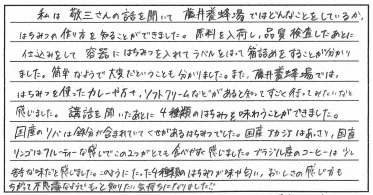 私は敬三さんの話を聞いて藤井養蜂場ではどんなことをしているか、
はちみつの作り方を知ることができました。原料を入荷し、品質検査したあとに
仕込みをして容器にはちみつを入れてラベルをはって箱詰めをすることが分かり
ました。簡単なようで大変だということも分かりました。また、藤井養蜂場では、
はちみつを使ったカレーや方々、ソフトクリームなどがあると知ってすごく行ってみたいなと
感じました。講話を聞いたあとに4種類のはちみつを味わうことができました。
国産のソバは鉄分が含まれていてくせがあるはちみつでした。国産アカシアはあっさり、国産
リンゴはフルーティーな感じでこの2つがとても食べやすく感じました。ブラジル産のコーヒーは少し
特な味だと感じました。このように、たった4種類のはちみつが味や匂い、おいしさの感じ方も
ちがって不思議だなぁもっと知りたいな気持ちになりました!